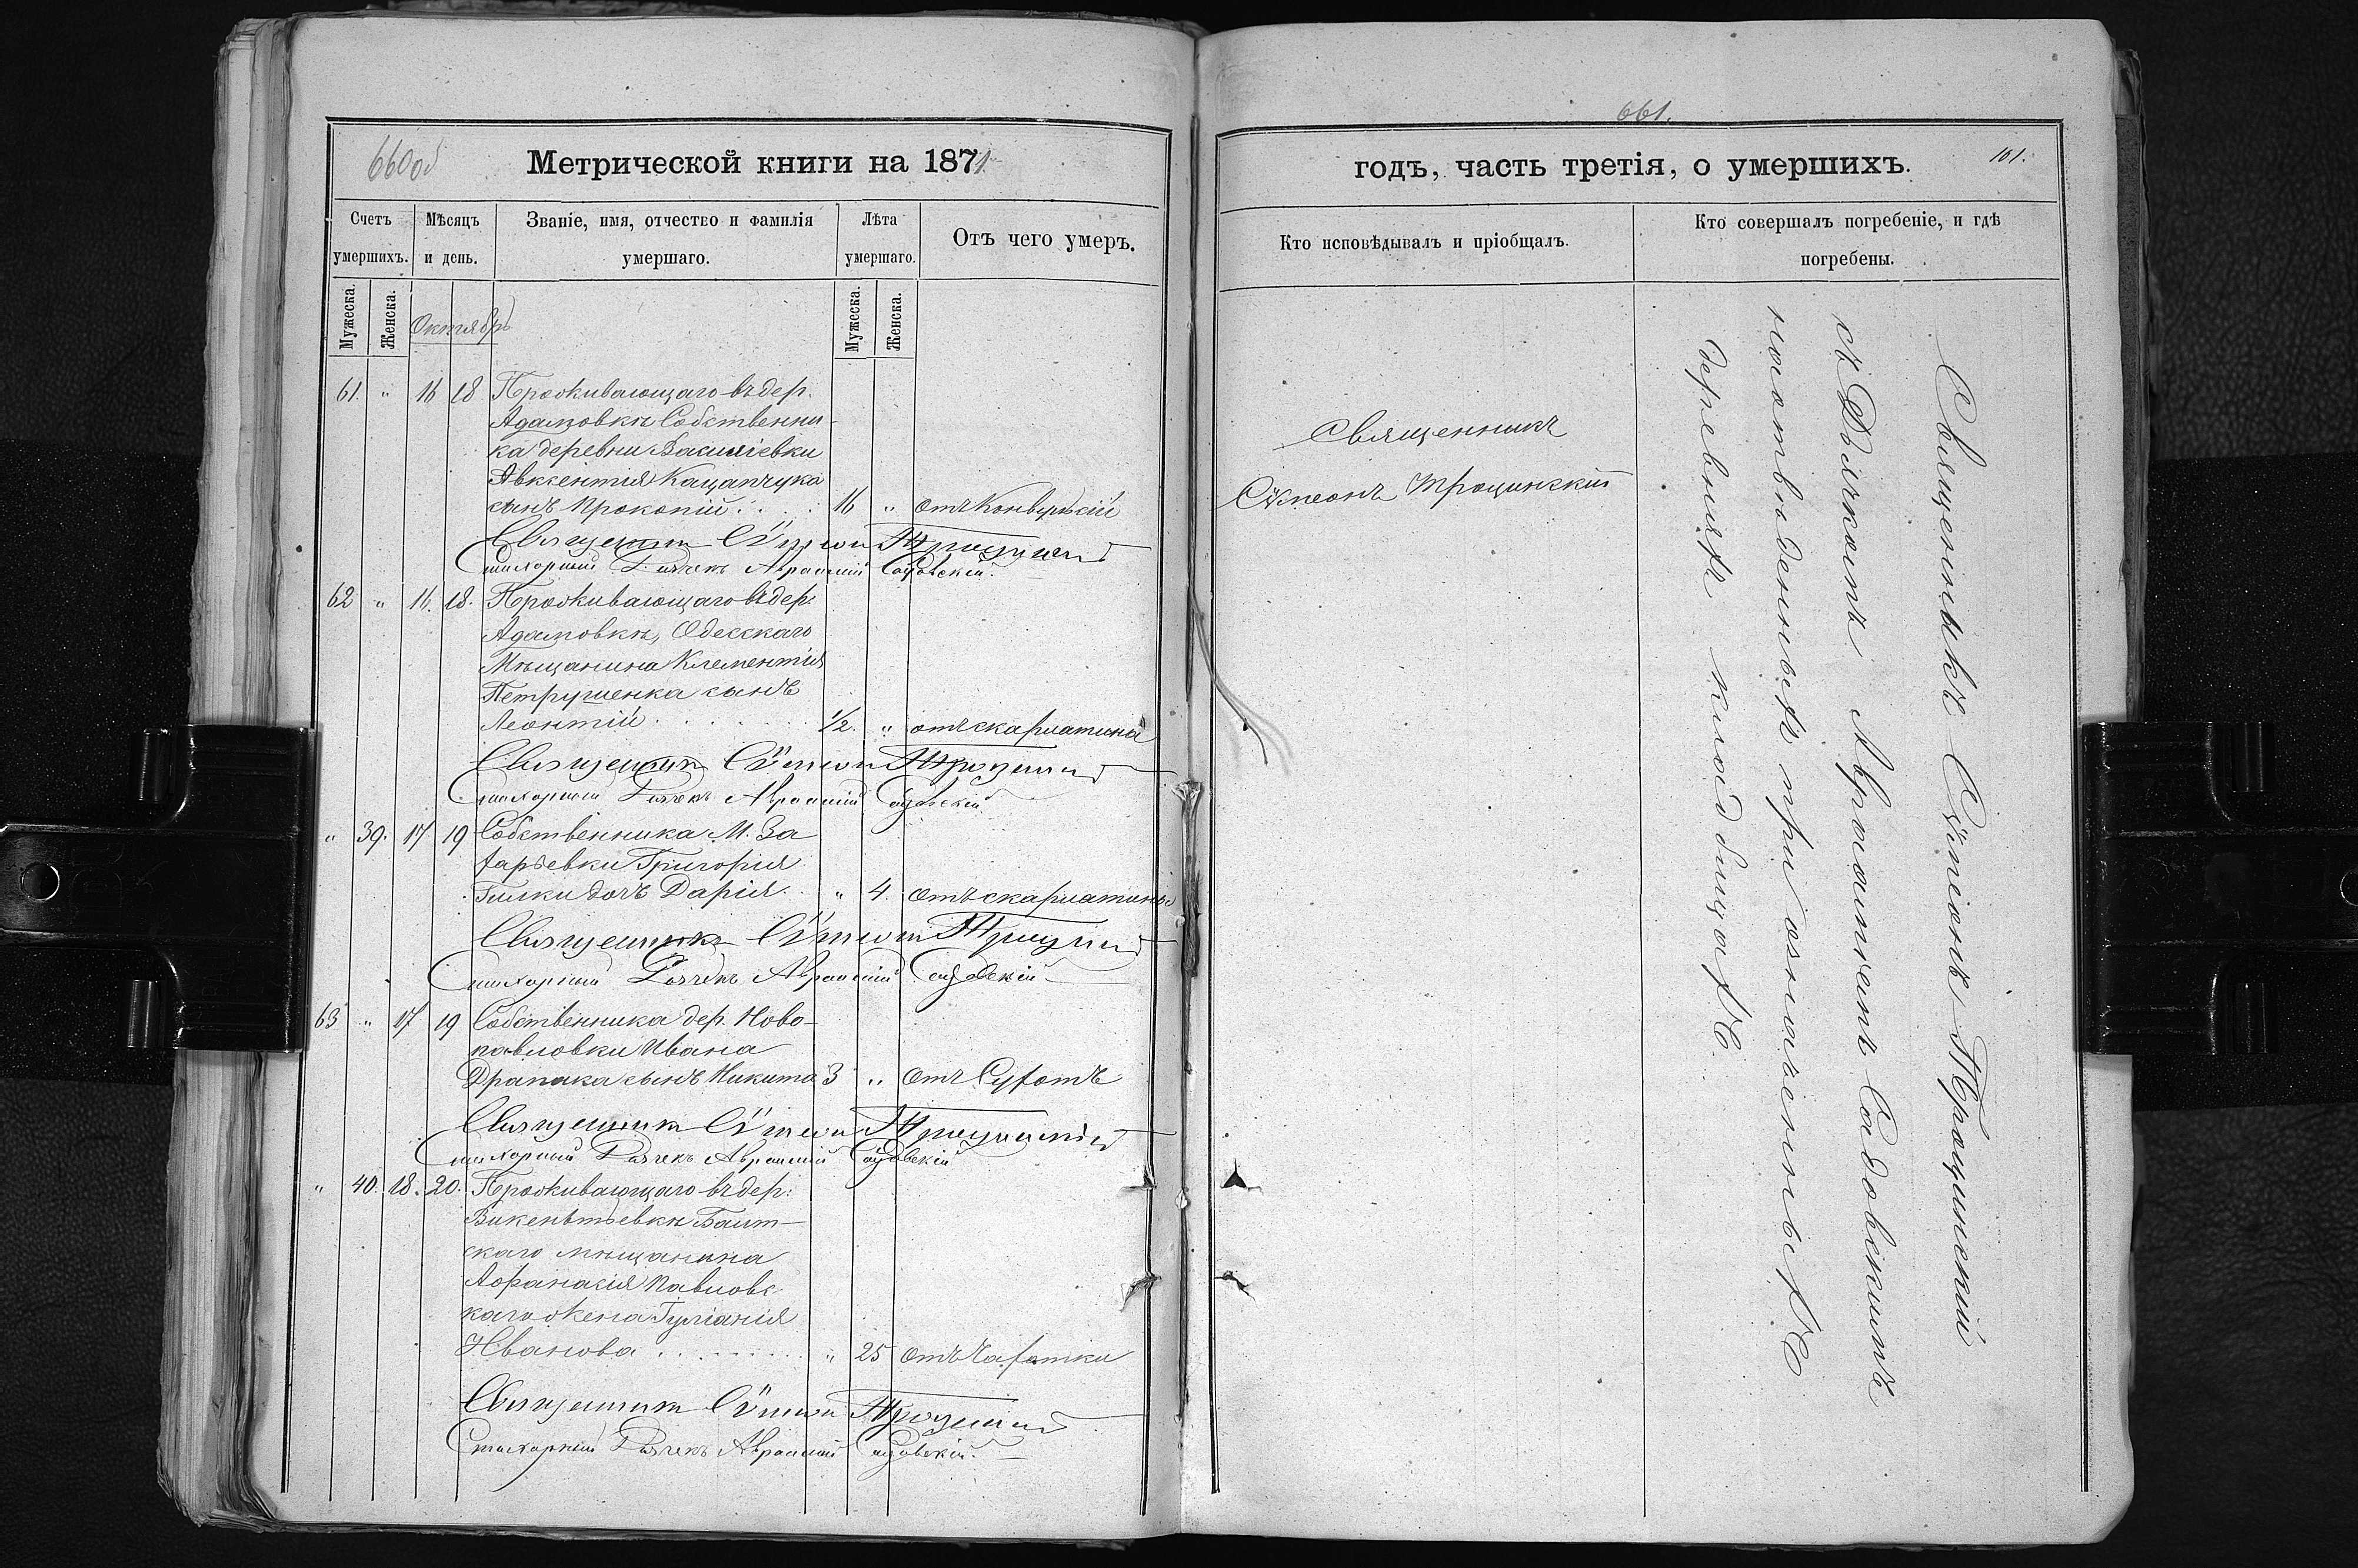 660об
Метрической книги на 1871
Счетъ умершихъ.
Мѣсяцъ и день.
Званіе, имя, отчество и фамилія умершаго.
Лѣта умершаго.
Отъ чего умеръ.
Мужеска.
Женска.
Октябрь
Мужеска.
Женска.
61. " 16 18 Проживающаго въ дер.
Адамовкѣ Собственни-
ка деревни Василіевки
Авксентія Кацапчука
сынъ Прокопій . . . . 16 " отъ Конвульсій
Священникъ Сѵмеонъ Троцинскій
Стихарный Дьячекъ Авраамій Садовскій.
62 " 16. 18. Проживающаго въ дер.
Адамовкѣ, Одесскаго
Мѣщанина Клементія
Петрушенка сынъ
Леонтій . . . . . . . 1/2. " отъ скарлатины
Священникъ Сѵмеонъ Троцинскій
Стихарный Дьячекъ Авраамій Садовскій
" 39. 17 19 Собственника М. За
харьевки Григорія
Гилки дочь Дарія. . " 4. отъ скарлатины
Священникъ Сѵмеонъ Троцинскій
Стихарный Дьячекъ Авраамій Садовскій
63 " 17 19 Собственника дер. Ново-
павловки Ивана
Драпака сынъ Никита 3 " отъ Сухотъ
Священникъ Сѵмеонъ Троцинскій
Стихарный Дьячекъ Авраамій Садовскій
" 40. 18. 20. Проживающаго въ дер:
Викентьевкѣ Балт-
скаго мѣщанина
Афанасія Павловс
каго жена Іуліанія
Иванова . . . . . . . . " 25 отъ Чахотки
Священникъ Сѵмеонъ Троцинскій
Стихарный Дьячекъ Авраамій Садовскій.
661.
годъ, часть третія, о умершихъ.
101.
Кто исповѣдывалъ и пріобщалъ.
Кто совершалъ погребеніе, и гдѣ
погребены.
Священникъ
Сѵмеонъ Троцинскій
Священникъ Сѵмеонъ Троцинскій
съ Дьячкомъ Авраамiемъ Садовскимъ
на отведенныхъ при означенныхъ
деревняхъ кладбищахъ